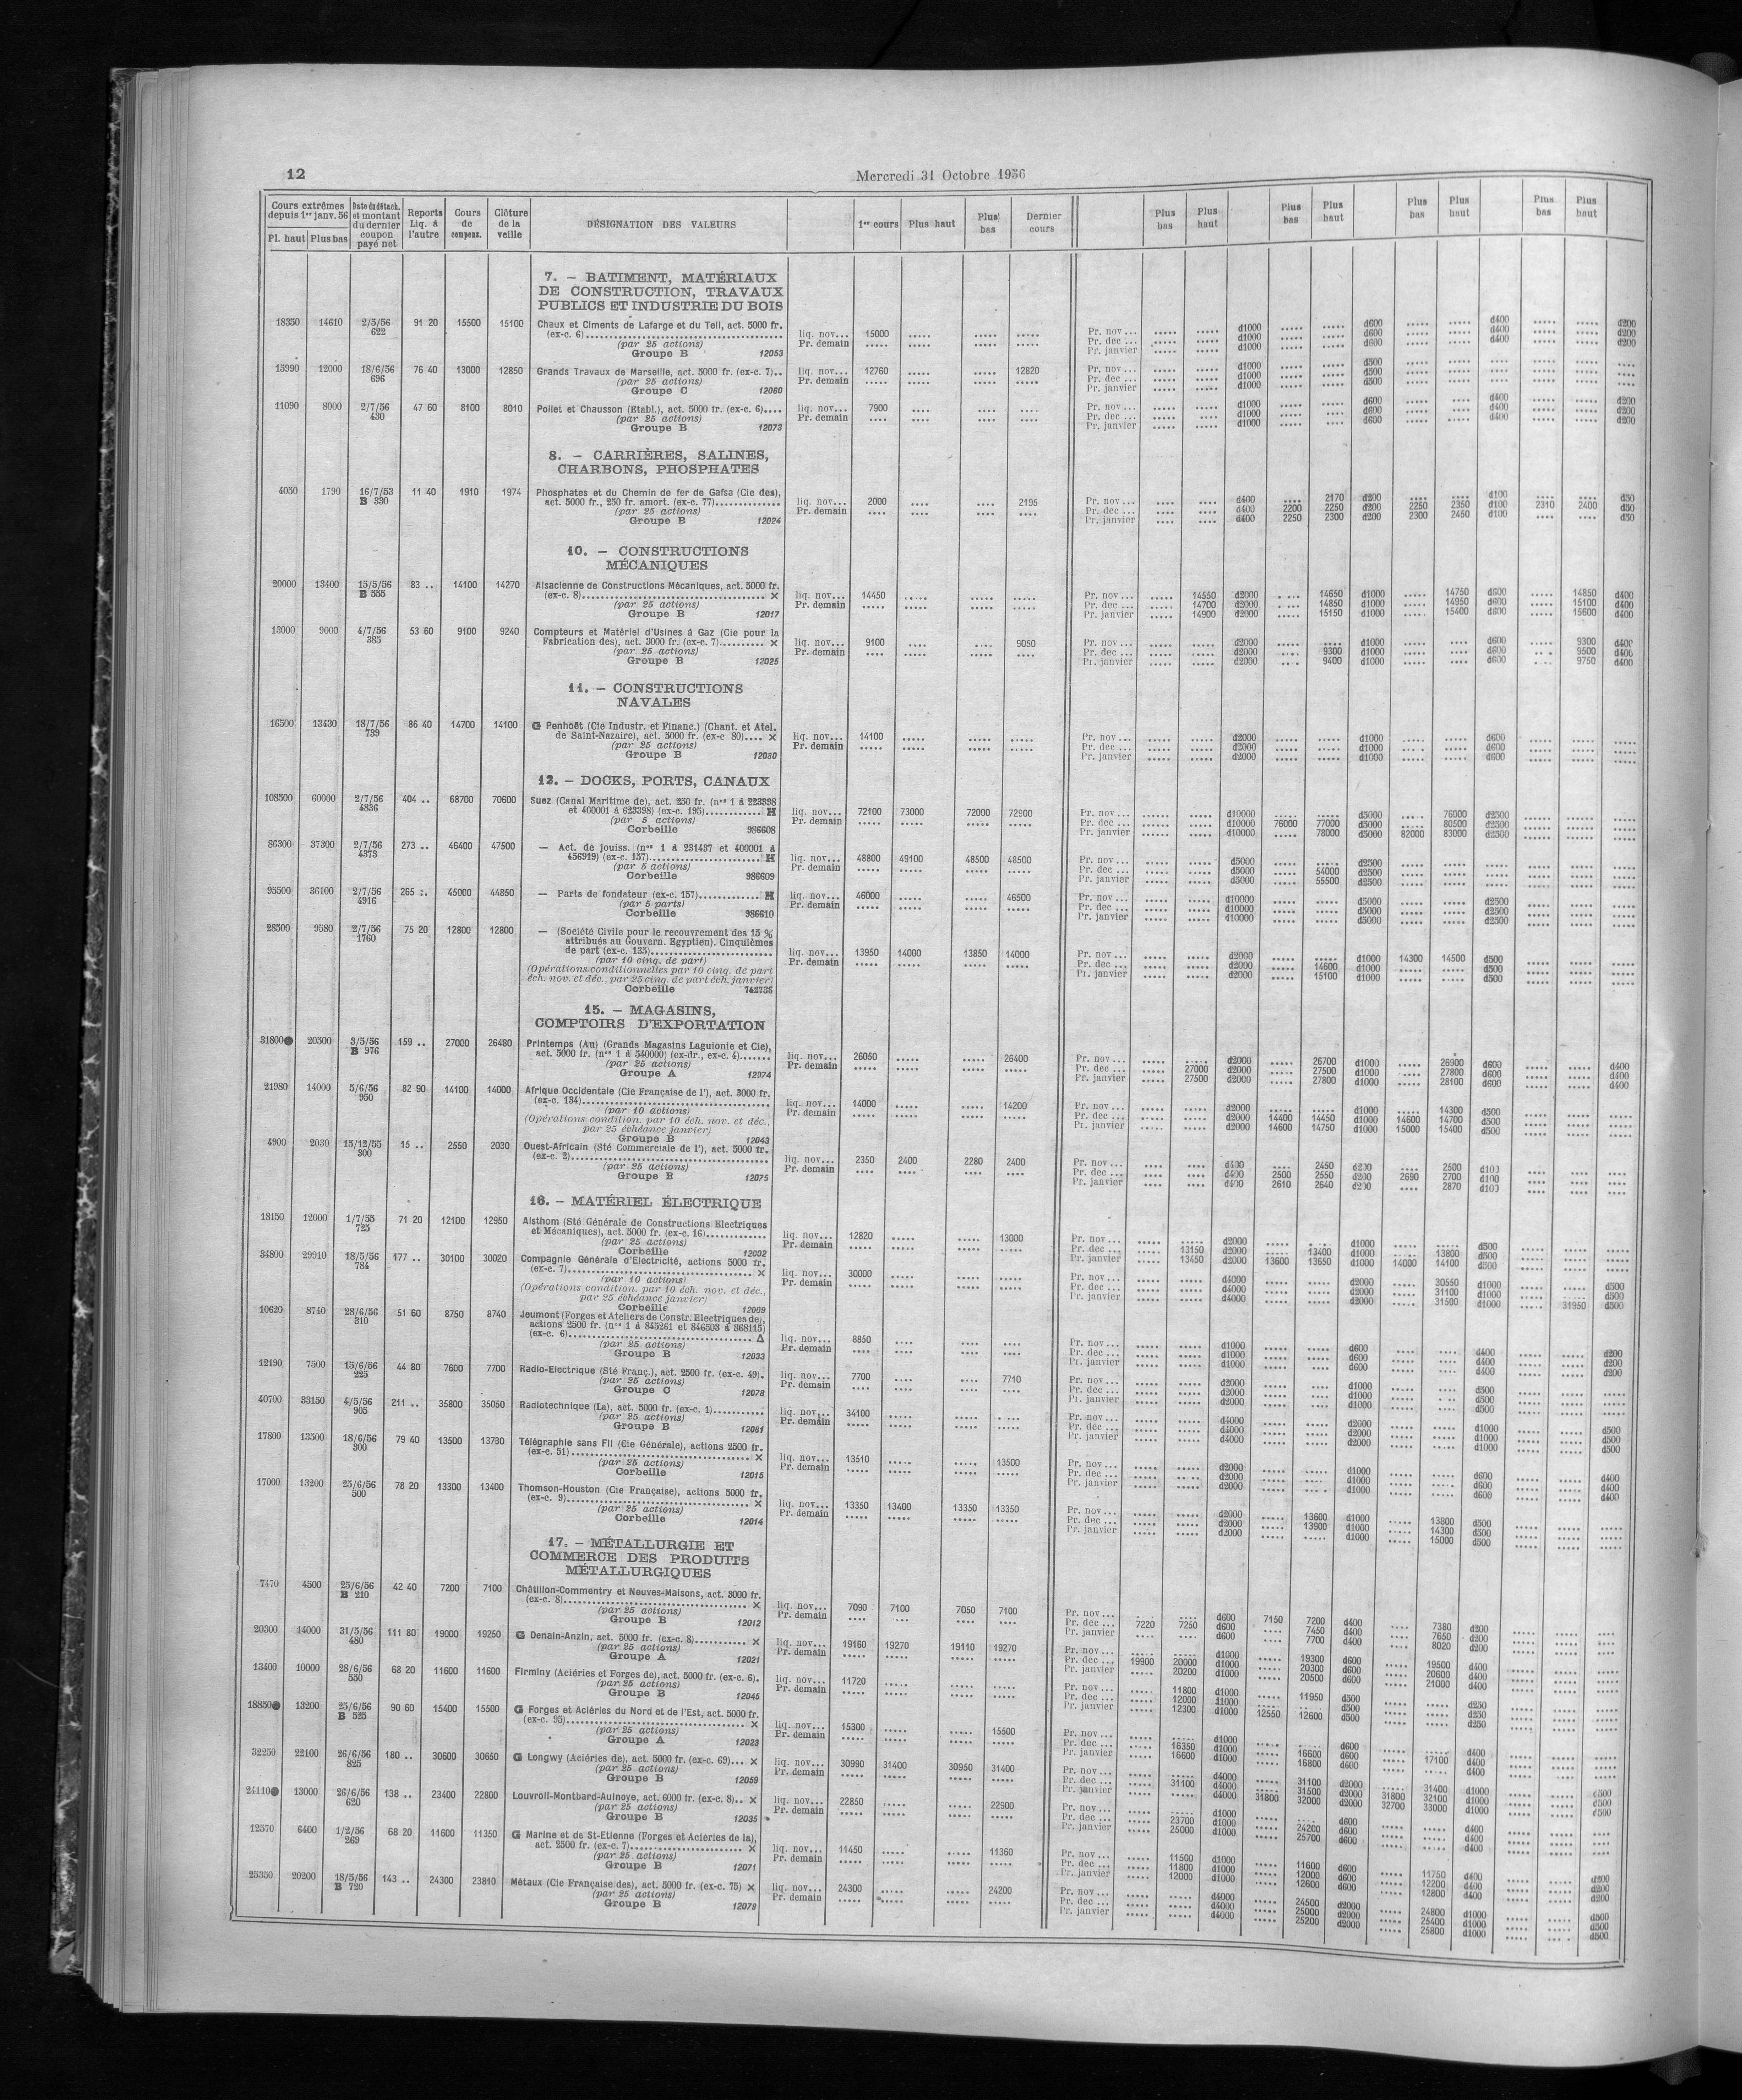 12
Mercredi 31 Octobre 1956
Cours extrêmes depuis 1er janv. 56 Pl. haut Plus bas
Date de détach. et montant du dernier coupon payé net
Reports Liq. à l'autre
Cours de compens.
Clôture de la veille
DÉSIGNATION DES VALEURS
1er cours Plus haut Plus bas Dernier cours
Plus bas Plus haut Plus bas Plus haut Plus bas Plus haut Plus bas Plus haut
7. — BATIMENT, MATÉRIAUX
DE CONSTRUCTION, TRAVAUX
PUBLICS ET INDUSTRIE DU BOIS
18350 14610 2/5/56 622 91 20 15500 15100 Chaux et Ciments de Lafarge et du Teil, act. 5000 fr.
(ex-c. 6) liq. nov... 15000
(par 25 actions) Pr. demain
Groupe B 12053
Pr. nov... d1000 d600 d400 d200
Pr. dec... d1000 d600 d400 d200
Pr. janvier d1000 d600 d400 d200
15990 12000 18/6/56 696 76 40 13000 12850 Grands Travaux de Marseille, act. 5000 fr. (ex-c. 7).. liq. nov... 12760 12820
(par 25 actions) Pr. demain
Groupe C 12060
Pr. nov... d1000 d500
Pr. dec... d1000 d500
Pr. janvier d1000 d500
11090 8000 2/7/56 430 47 60 8100 8010 Poliet et Chausson (Etabl.), act. 5000 fr. (ex-c. 6).... liq. nov... 7900
(par 25 actions) Pr. demain
Groupe B 12073
Pr. nov... d1000 d600 d400 d200
Pr. dec... d1000 d600 d400 d200
Pr. janvier d1000 d600 d400 d200
8. — CARRIÈRES, SALINES,
CHARBONS, PHOSPHATES
4050 1790 16/7/53 B 330 11 40 1910 1974 Phosphates et du Chemin de fer de Gafsa (Cie des),
act. 5000 fr., 250 fr. amort. (ex-c. 77) liq. nov... 2000 2195
(par 25 actions) Pr. demain
Groupe B 12024
Pr. nov... d400 2170 d200 d100 d50
Pr. dec... d400 2200 2250 d200 2250 2350 d100 2310 2400 d50
Pr. janvier d400 2250 2300 d200 2300 2450 d100 d50
10. — CONSTRUCTIONS
MÉCANIQUES
20000 13400 15/5/56 B 555 83 .. 14100 14270 Alsacienne de Constructions Mécaniques, act. 5000 fr.
(ex-c. 8) × liq. nov... 14450
(par 25 actions) Pr. demain
Groupe B 12017
Pr. nov... 14550 d2000 14650 d1000 14750 d600 14850 d400
Pr. dec... 14700 d2000 14850 d1000 14950 d600 15100 d400
Pr. janvier 14900 d2000 15150 d1000 15400 d600 15600 d400
13000 9000 4/7/56 385 53 60 9100 9240 Compteurs et Matériel d'Usines à Gaz (Cie pour la
Fabrication des), act. 3000 fr. (ex-c. 7) × liq. nov... 9100 9050
(par 25 actions) Pr. demain
Groupe B 12025
Pr. nov... d2000 d1000 d600 9300 d400
Pr. dec... d2000 9300 d1000 d600 9500 d400
Pr. janvier d2000 9400 d1000 d600 9750 d400
11. — CONSTRUCTIONS
NAVALES
16500 13430 18/7/56 739 86 40 14700 14100 G Penhoët (Cie Industr. et Financ.) (Chant. et Atel.
de Saint-Nazaire), act. 5000 fr. (ex-c 80).... × liq. nov... 14100
(par 25 actions) Pr. demain
Groupe B 12030
Pr. nov... d2000 d1000 d600
Pr. dec... d2000 d1000 d600
Pr. janvier d2000 d1000 d600
12. — DOCKS, PORTS, CANAUX
108500 60000 2/7/56 4836 404 .. 68700 70600 Suez (Canal Maritime de), act. 250 fr. (nos 1 à 223398
et 400001 à 623398) (ex-c. 195) H liq. nov... 72100 73000 72000 72800
(par 5 actions) Pr. demain
Corbeille 986608
Pr. nov... d10000 d5000 76000 d2500
Pr. dec... d10000 76000 77000 d5000 80500 d2500
Pr. janvier d10000 78000 d5000 82000 83000 d2500
86300 37300 2/7/56 4373 273 .. 46400 47500 — Act. de jouiss. (nos 1 à 231437 et 400001 à
456919) (ex-c. 157) H liq. nov... 48800 49100 48500 48500
(par 5 actions) Pr. demain
Corbeille 986609
Pr. nov... d5000 d2500
Pr. dec... d5000 54000 d2500
Pr. janvier d5000 55500 d2500
95500 36100 2/7/56 4916 265 :. 45000 44850 — Parts de fondateur (ex-c. 157) H liq. nov... 46000 46500
(par 5 parts) Pr. demain
Corbeille 986610
Pr. nov... d10000 d5000 d2500
Pr. dec... d10000 d5000 d2500
Pr. janvier d10000 d5000 d2500
28500 9580 2/7/56 1760 75 20 12800 12800 — (Société Civile pour le recouvrement des 15 %
attribués au Gouvern. Egyptien). Cinquièmes
de part (ex-c. 135) liq. nov... 13950 14000 13850 14000
(par 10 cinq. de part) Pr. demain
(Opérations conditionnelles par 10 cinq. de part
éch. nov. et déc., par 25 cinq. de part éch. janvier)
Corbeille
Pr. nov... d2000 d1000 14300 14500 d500
Pr. dec... d2000 14600 d1000 d500
Pr. janvier d2000 15100 d1000 d500
15. — MAGASINS,
COMPTOIRS D'EXPORTATION
31800● 20500 3/5/56 B 976 159 .. 27000 26480 Printemps (Au) (Grands Magasins Laguionie et Cie),
act. 5000 fr. (nos 1 à 540000) (ex-dr., ex-c. 4) liq. nov... 26050 26400
(par 25 actions) Pr. demain
Groupe A 12974
Pr. nov... d2000 26700 d1000 26900 d600 d400
Pr. dec... 27000 d2000 27500 d1000 27800 d600 d400
Pr. janvier 27500 d2000 27800 d1000 28100 d600 d400
21980 14000 5/6/56 950 82 90 14100 14000 Afrique Occidentale (Cie Française de l'), act. 3000 fr.
(ex-c. 134) liq. nov... 14000 14200
(par 10 actions) Pr. demain
(Opérations condition. par 10 éch. nov. et déc.,
par 25 échéance janvier)
Groupe B 12043
Pr. nov... d2000 d1000 14300 d500
Pr. dec... d2000 14400 14450 d1000 14600 14700 d500
Pr. janvier d2000 14600 14750 d1000 15000 15400 d500
4900 2030 15/12/55 300 15 .. 2550 2030 Ouest-Africain (Sté Commerciale de l'), act. 5000 fr.
(ex-c. 2) liq. nov... 2350 2400 2280 2400
(par 25 actions) Pr. demain
Groupe B 12075
Pr. nov... d400 2450 d200 2500 d100
Pr. dec... d400 2500 2550 d200 2690 2700 d100
Pr. janvier d400 2610 2640 d200 2870 d100
16. — MATÉRIEL ÉLECTRIQUE
18150 12000 1/7/55 725 71 20 12100 12950 Alsthom (Sté Générale de Constructions Electriques
et Mécaniques), act. 5000 fr. (ex-c. 16) liq. nov... 12820 13000
(par 25 actions) Pr. demain
Corbeille 12002
Pr. nov... d2000 d1000 d500
Pr. dec... 13150 d2000 13400 d1000 13800 d500
Pr. janvier 13450 d2000 13600 13650 d1000 14000 14100 d500
34800 29910 18/5/56 784 177 .. 30100 30020 Compagnie Générale d'Electricité, actions 5000 fr.
(ex-c. 7) × liq. nov... 30000
(par 10 actions) Pr. demain
(Opérations condition. par 10 éch. nov. et déc.,
par 25 échéance janvier)
Corbeille 12009
Pr. nov... d4000 d2000 30550 d1000 d500
Pr. dec... d4000 d2000 31100 d1000 d500
Pr. janvier d4000 d2000 31500 d1000 31950 d500
10620 8740 28/6/56 310 51 60 8750 8740 Jeumont (Forges et Ateliers de Constr. Electriques de),
actions 2500 fr. (nos 1 à 845261 et 846503 à 868115)
(ex-c. 6) Δ liq. nov... 8850
(par 25 actions) Pr. demain
Groupe B 12033
Pr. nov... d1000 d600 d400 d200
Pr. dec... d1000 d600 d400 d200
Pr. janvier d1000 d600 d400 d200
12190 7500 15/6/56 225 44 80 7600 7700 Radio-Electrique (Sté Franç.), act. 2500 fr. (ex-c. 49). liq. nov... 7700 7710
(par 25 actions) Pr. demain
Groupe C 12078
Pr. nov... d2000 d1000 d500
Pr. dec... d2000 d1000 d500
Pr. janvier d2000 d1000 d500
40700 33150 4/5/56 905 211 .. 35800 35050 Radiotechnique (La), act. 5000 fr. (ex-c. 1) liq. nov... 34100
(par 25 actions) Pr. demain
Groupe B 12081
Pr. nov... d4000 d2000 d1000 d500
Pr. dec... d4000 d2000 d1000 d500
Pr. janvier d4000 d2000 d1000 d500
17800 13500 18/6/56 300 79 40 13500 13730 Télégraphie sans Fil (Cie Générale), actions 2500 fr.
(ex-c. 51) × liq. nov... 13510 13500
(par 25 actions) Pr. demain
Corbeille 12015
Pr. nov... d2000 d1000 d600 d400
Pr. dec... d2000 d1000 d600 d400
Pr. janvier d2000 d1000 d600 d400
17000 13200 25/6/56 500 78 20 13300 13400 Thomson-Houston (Cie Française), actions 5000 fr.
(ex-c. 9) × liq. nov... 13350 13400 13350 13350
(par 25 actions) Pr. demain
Corbeille 12014
Pr. nov... d2000 13600 d1000 13800 d500
Pr. dec... d2000 13900 d1000 14300 d500
Pr. janvier d2000 d1000 15000 d500
17. — MÉTALLURGIE ET
COMMERCE DES PRODUITS
MÉTALLURGIQUES
7470 4500 25/6/56 B 210 42 40 7200 7100 Châtillon-Commentry et Neuves-Maisons, act. 3000 fr.
(ex-c. 8) × liq. nov... 7090 7100 7050 7100
(par 25 actions) Pr. demain
Groupe B 12012
Pr. nov... d600 7150 7200 d400 7380 d200
Pr. dec... 7220 7250 d600 7450 d400 7650 d200
Pr. janvier d600 7700 d400 8020 d200
20300 14000 31/5/56 480 111 80 19000 19250 G Denain-Anzin, act. 5000 fr. (ex-c. 8) × liq. nov... 19160 19270 19110 19270
(par 25 actions) Pr. demain
Groupe A 12021
Pr. nov... d1000 19300 d600 19500 d400
Pr. dec... 19900 20000 d1000 20300 d600 20600 d400
Pr. janvier 20200 d1000 20500 d600 21000 d400
13400 10000 28/6/56 550 68 20 11600 11600 Firminy (Aciéries et Forges de), act. 5000 fr. (ex-c. 6). liq. nov... 11720
(par 25 actions) Pr. demain
Groupe B 12045
Pr. nov... 11800 d1000 11950 d500 d250
Pr. dec... 12000 d1000 d500 d250
Pr. janvier 12300 d1000 12550 12600 d500 d250
18850● 13200 25/6/56 B 525 90 60 15400 15500 G Forges et Aciéries du Nord et de l'Est, act. 5000 fr.
(ex-c. 95) × liq. nov... 15300 15500
(par 25 actions) Pr. demain
Groupe A 12023
Pr. nov... d1000 d600 d400
Pr. dec... 16350 d1000 16600 d600 17100 d400
Pr. janvier 16600 d1000 16800 d600 d400
32250 22100 26/6/56 825 180 .. 30600 30650 G Longwy (Aciéries de), act. 5000 fr. (ex-c. 69)... × liq. nov... 30990 31400 30950 31400
(par 25 actions) Pr. demain
Groupe B 12059
Pr. nov... d4000 31100 d2000 31400 d1000 d500
Pr. dec... 31100 d4000 31500 d2000 31800 32100 d1000 d500
Pr. janvier d4000 31800 32000 d2000 32700 33000 d1000 d500
24110● 13000 26/6/56 620 138 .. 23400 22800 Louvroil-Montbard-Aulnoye, act. 6000 fr. (ex-c. 8).. × liq. nov... 22850 22900
(par 25 actions) Pr. demain
Groupe B 12035
Pr. nov... d1000 d600 d400
Pr. dec... 23700 d1000 24200 d600 d400
Pr. janvier 25000 d1000 25700 d600 d400
12570 6400 1/2/56 269 68 20 11600 11350 G Marine et de St-Etienne (Forges et Aciéries de la),
act. 2500 fr. (ex-c. 7) × liq. nov... 11450 11360
(par 25 actions) Pr. demain
Groupe B 12071
Pr. nov... 11500 d1000 11600 d600 11750 d400 d200
Pr. dec... 11800 d1000 12000 d600 12200 d400 d200
Pr. janvier 12000 d1000 12600 d600 12800 d400 d200
25350 20200 18/5/56 B 720 143 .. 24300 23810 Métaux (Cie Française des), act. 5000 fr. (ex-c. 75) × liq. nov... 24300 24200
(par 25 actions) Pr. demain
Groupe B 12079
Pr. nov... d4000 24500 d2000 24800 d1000 d500
Pr. dec... d4000 25000 d2000 25400 d1000 d500
Pr. janvier d4000 25200 d2000 25800 d1000 d500